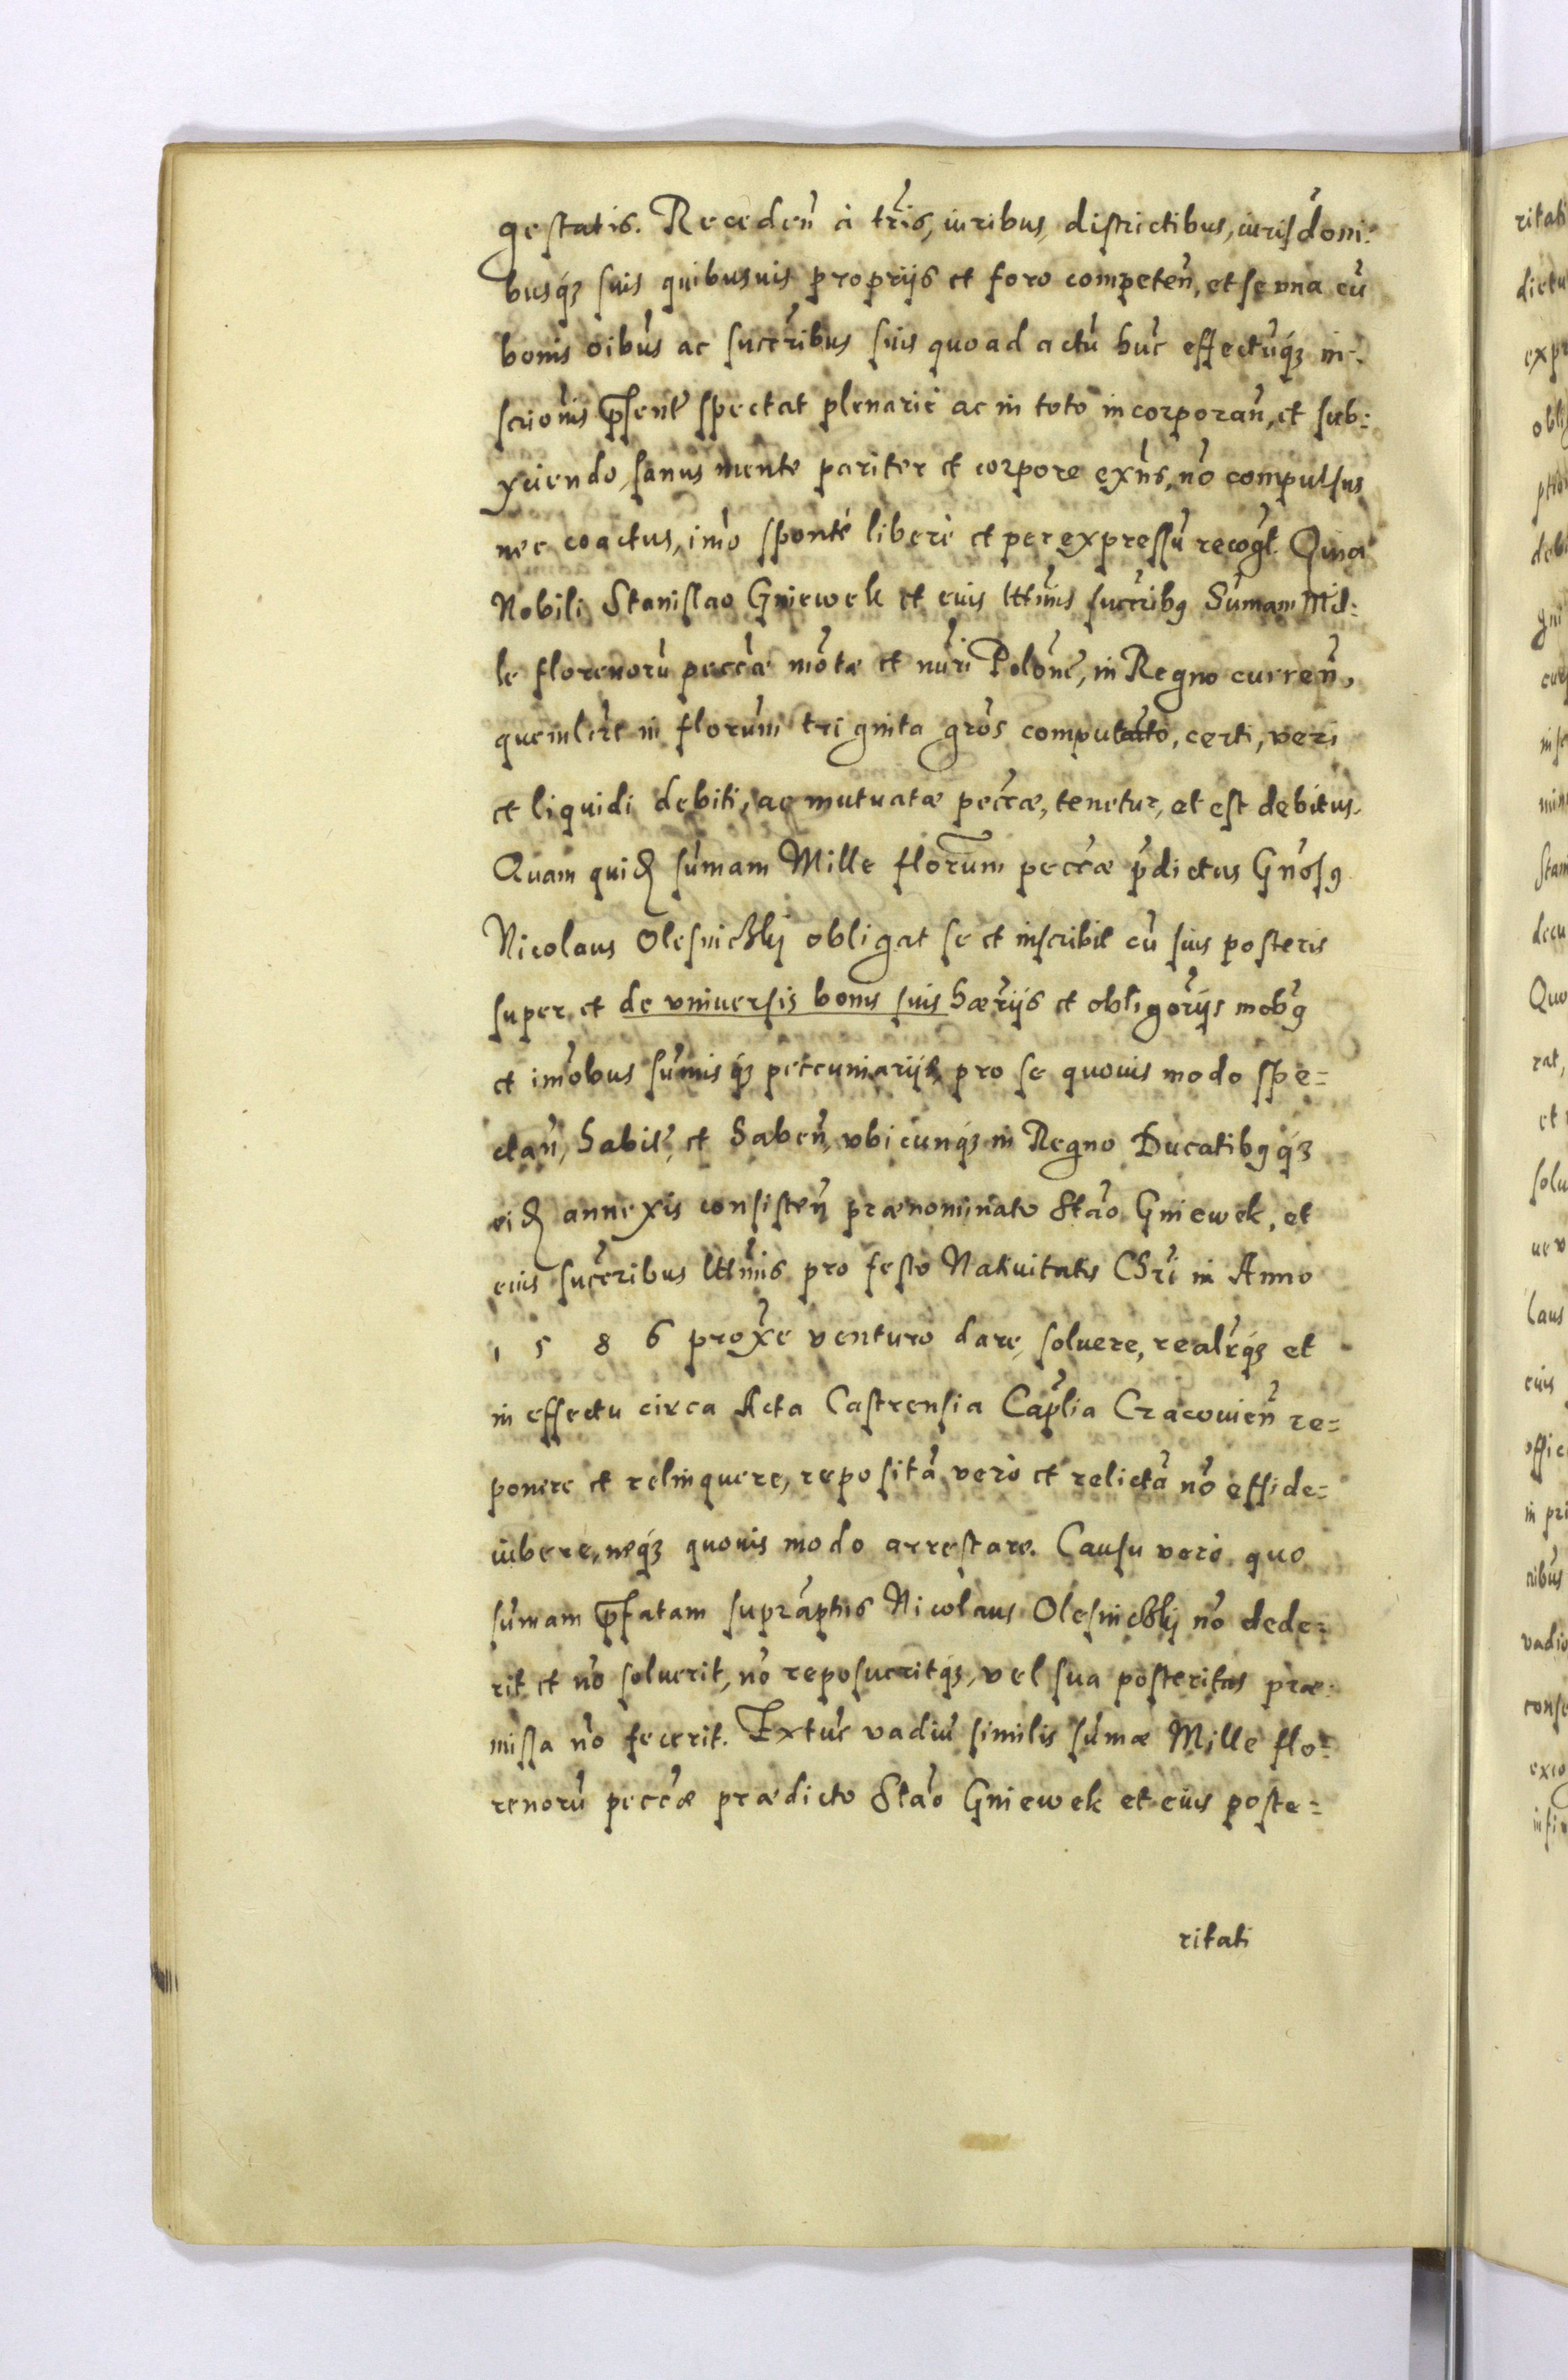 gestatis. Receden̄ à tr̄is, iuribus, districtibus, iurisdōni:
busq́ꝫ suis quibusuis proprijs et foro competen̄, et se vna cū
bonis oībus ac succr̄ibus suis quoad actū hūc effectūq́ꝫ in-
scrīonis p̄senť spectat plenariè ac in toto incorporan̄, et sub:
yciendo, sanus mente pariter et corpore exn̄s, nō compulsus
nec coactus, imò sponté liberè et per expressū recogľ. Quia
Nobili Stanislao Gniewek et eius lttimis succr̄ibꝯ Sum̄am Mil:
le florenorū peccæ mōtæ et nūri Polōnē, in Regno curren̄,
quemlēt in florum̄ triginta grōs computato, certi, veri
et liquidi debiti, ac mutuatæ peccæ, tenetur, et est debitus.
Quam quiď sum̄am Mille florum̄ peccæ p̄dictus Gnōsꝯ
Nicolaus Olesnichÿ obligat se et inscribit cū suis posteris
super et de vniuersis bonis suis hær̄ijs et obligōrijs mobꝯ
et im̄obus sum̄isq́ꝫ peccuniarijs, pro se quouis modo spe=
ctan̄, habiť, et haben̄, vbicunq́ꝫ in Regno Ducatibꝯq́ꝫ
eiď annexis consisten̄ prænominato Stāo Gniewek, et
eius succr̄ibus lttimis pro festo Natiuitatis Chri in Anno
1 5 8 6 proxe venturo dare, soluere, realr̄q́ꝫ et
in effectu circa Acta Castrensia Cap̄lia Cracouien̄ re=
ponere et relinquere, repositā verò et relictā nō effide=
iubere, neq́ꝫ quouis modo arrestare. Causu verò quo
sum̄am p̄fatam suprāptus Nicolaus Olesnichÿ nō dede=
rit et nō soluerit, nō reposueritq́ꝫ, vel sua posteritas præ:
missa nō fecerit. Extūc vadiū similis sum̄æ Mille flo=
renorū peccæ prædicto Stāo Gniewek et eius poste=
ritati